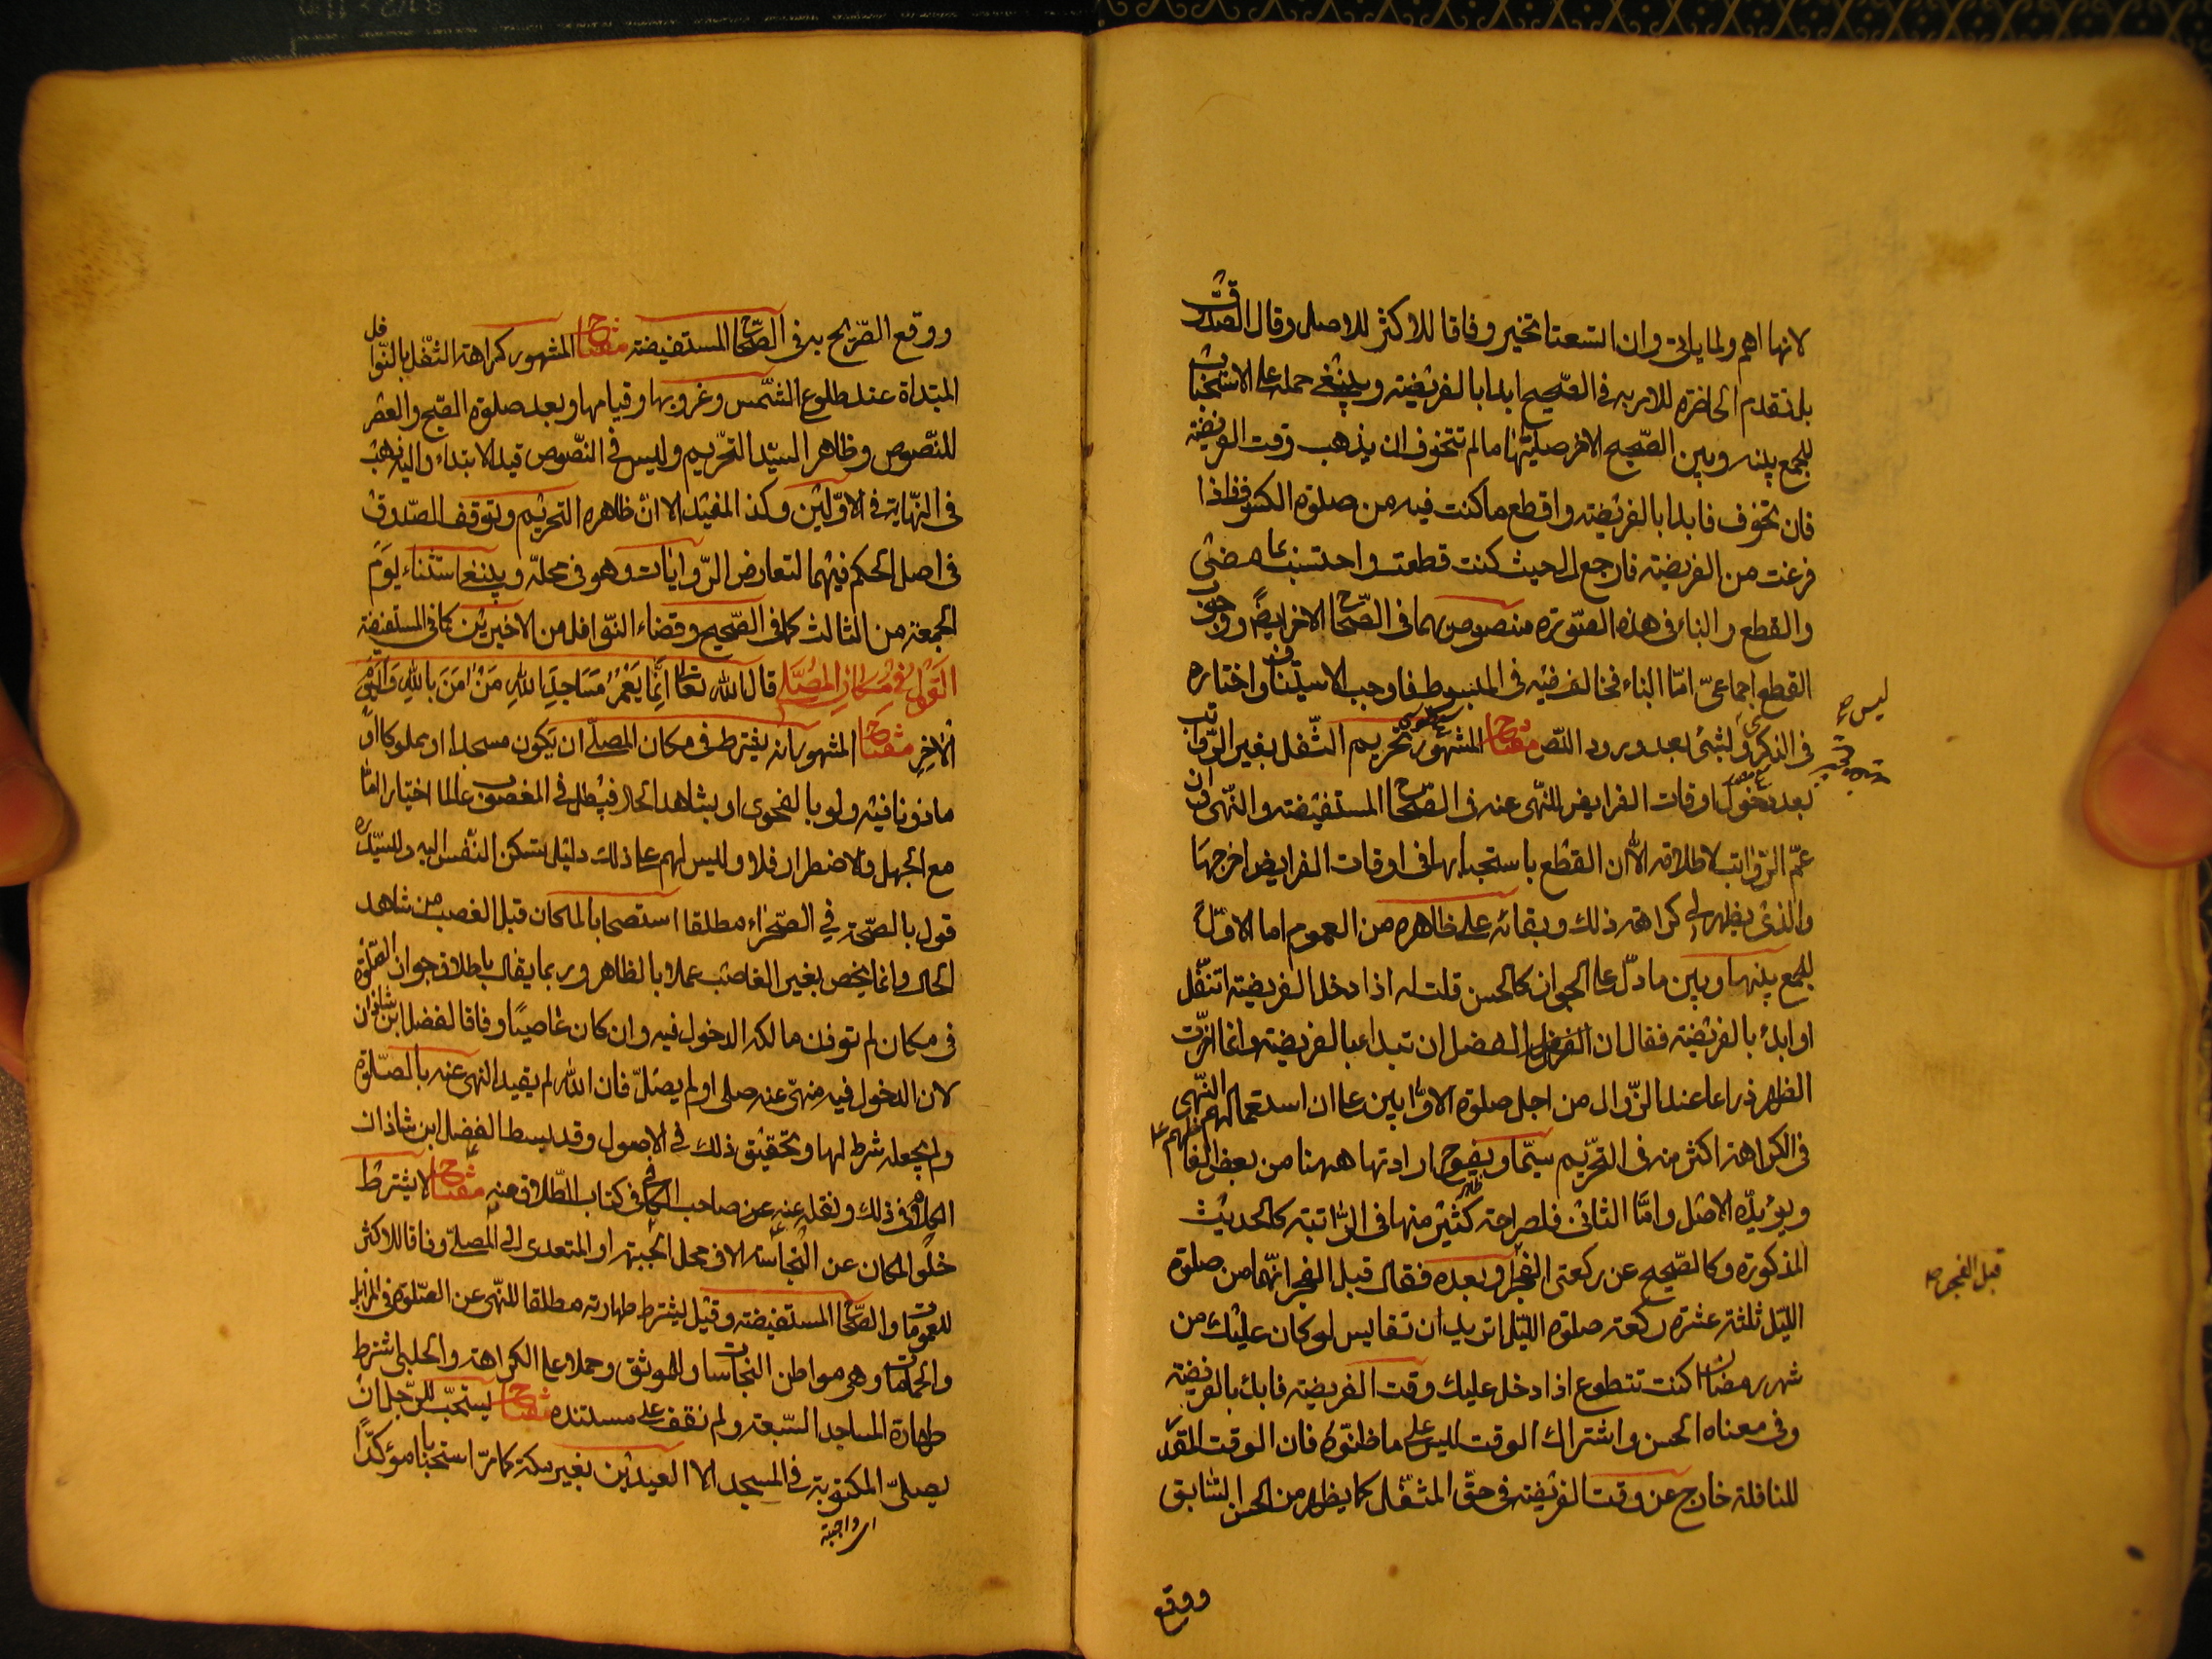 لانها اهم ولما ياتى وان اتسعتا تخير وفاقا للاكثر للاصل وقال الصدوق
بل تقدم الحاضرة للامر به فى الصحيح ابدا بالفريضة وينبغى حمله على الاستحباب
للجمع بينه وبين الصحيح الاخر صليتها ما لم تتخوف ان يذهب وقت الفريضة
فان تخوفت فابدا بالفريضة واقطع ما كنت فيه من صلوة الكسوف فاذا
فرغت من الفريضة فارجع الى حيث كنت قطعت واحتسب بما مضى
والقطع والبناء فى هذه الصورة منصوص بهما فى الصحاح الاخر ايضا وجواز
القطع اجماعى اما البناء فخالف فيه فى المبسوط فاوجب الاستيناف واختاره
فى الذكرى و لشئ بعد ورود النص مفتاح المشهور تحريم التنفل بغير الرواتب
بعد دخول اوقات الفرايض للنهى عنه فى الصحاح المستفيضة والنهى وان
عم الرواتب لاطلاقه الا ان القطع باستحبابها فى اوقات الفرايض اخرجها
والذى يظهر لى كراهة ذلك وبقائه على ظاهره من العموم اما الاول
للجمع بينها وبين ما دل على الجواز كالحسن قلت له اذا دخل الفريضة اتنفل
او ابدء بالفريضة فقال ان الفضل ان تبداء بالفريضة وانما اخرت
الظهر ذراعا عند الزوال من اجل صلوة الاوابين على ان استعمالهم النهى
فى الكراهة اكثر منه فى التحريم سيما ويفوح ارادتها ههنا من بعض الفاظهم
ويؤيده الاصل واما الثانى فلصراحة كثير منها فى الراتبة كالحديث
المذكورة وكالصحيح عن ركعتى الفجر او بعده فقال قبل الفجر انهما من صلوة
الليل ثلثة عشرة ركعة صلوة الليل اتريد ان تقايس لو كان عليك من
شهر رمضان اكنت تتطوع اذا دخل عليك وقت الفريضة فابدء بالفريضة
وفى معناه الحسن واشتراك الوقت ليس على ما ظنوه فان الوقت المقدر
للنافلة خارج عن وقت الفريضة فى حق المتنفل كما يظهر من الحسن السابق
ليس
قبل الفجر
ووقع
ووقع الصريح به فى الصحاح المستفيضة مفتاح المشهور كراهة التنفل بالنوافل
المبتداة عند طلوع الشمس وغروبها وقيامها وبعد صلوة الصبح والعصر
للنصوص وظاهر السيد التحريم وليس فى النصوص قيد الابتداء واليه ذهب
فى النهاية فى الاولين وكذا المفيد الا ان ظاهره التحريم وتوقف الصدوق
فى اصل الحكم فيهما لتعارض الروايات وهو فى محله وينبغى استثناء يوم
الجمعة من الثالث كما فى الصحيح وقضاء النوافل من الاخيرين كما فى المستفيضة
القول فى مكان المصلى قال الله تعالى انما يعمر مساجد الله من امن بالله واليوم
الاخر مفتاح المشهور انه يشترط فى مكان المصلى ان يكون مسجدا او مملوكا او
ماذونا فيه ولو بالفحوى او بشاهد الحال فيبطل فى المغصوب عالما اختيارا اما
مع الجهل والاضطرار فلا وليس لهم على ذلك دليل تسكن النفس اليه وللسيد ره
قول بالصحة فى الصحراء مطلقا استصحابا لما كان قبل الغصب من شاهد
الحال وانما يخص بغير الغاصب عملا بالظاهر وربما يقال باطلاق جواز الصلوة
فى مكان لم توذن مالكه الدخول فيه وان كان غاصبا وفاقا لفضل ابن شاذان
لان الدخول فيه منهى عنه صلى او لم يصل فان الله لم يقيد النهى عنه بالصلوة
ولم يجعله شرط لها وتحقيق ذلك فى الاصول وقد بسط الفضل ابن شاذان
الكلام فى ذلك ونقله عنه عن صاحب الكافى فى كتاب الطلاق منه مفتاح لا يشترط
خلو المكان عن النجاسة الا فى محل الجبهة او المتعدى الى المصلى وفاقا للاكثر
للعمومات والصحاح المستفيضة وقيل يشترط طهارته مطلقا للنهى عن الصلوة فى المزابل
والحمامات وهى مواطن النجاسات وللموثق وحملا على الكراهة والحلبى اشترط
طهارة المساجد السبعة ولم نقف على مستنده مفتاح يستحب للرجل ان
يصلى المكتوبة فى المسجد الا العيدين بغير مكة كما مر استحبابا مؤكدا
اى واجبة